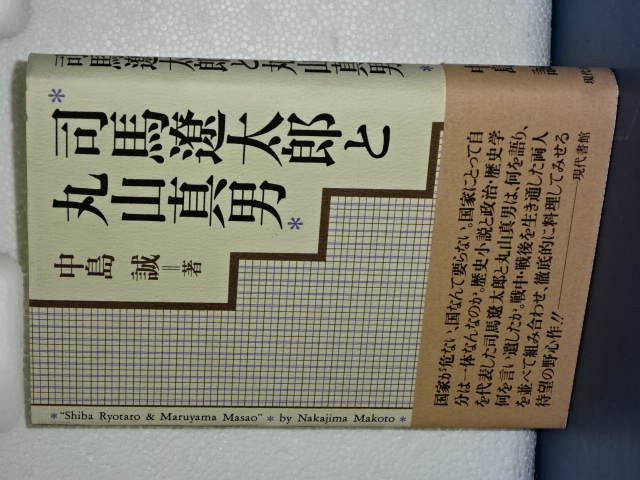 司馬遼太郎と丸山真男
中島 誠
現代
*司馬遼太郎と
丸山真男*
中島 誠=著
*"Shiba Ryotaro & Maruyama Masao" * by Nakajima Makoto *
国家が危ない、国なんて要らない。国家にとって自
分は一体なんなのか。歴史小説と政治・歴史学
を代表した司馬遼太郎と丸山真男は、何を語り、
何を言い遺したか。戦中・戦後を生き通した両人
を並べて組み合わせ、徹底的に料理してみせる
待望の野心作!!
現代書館